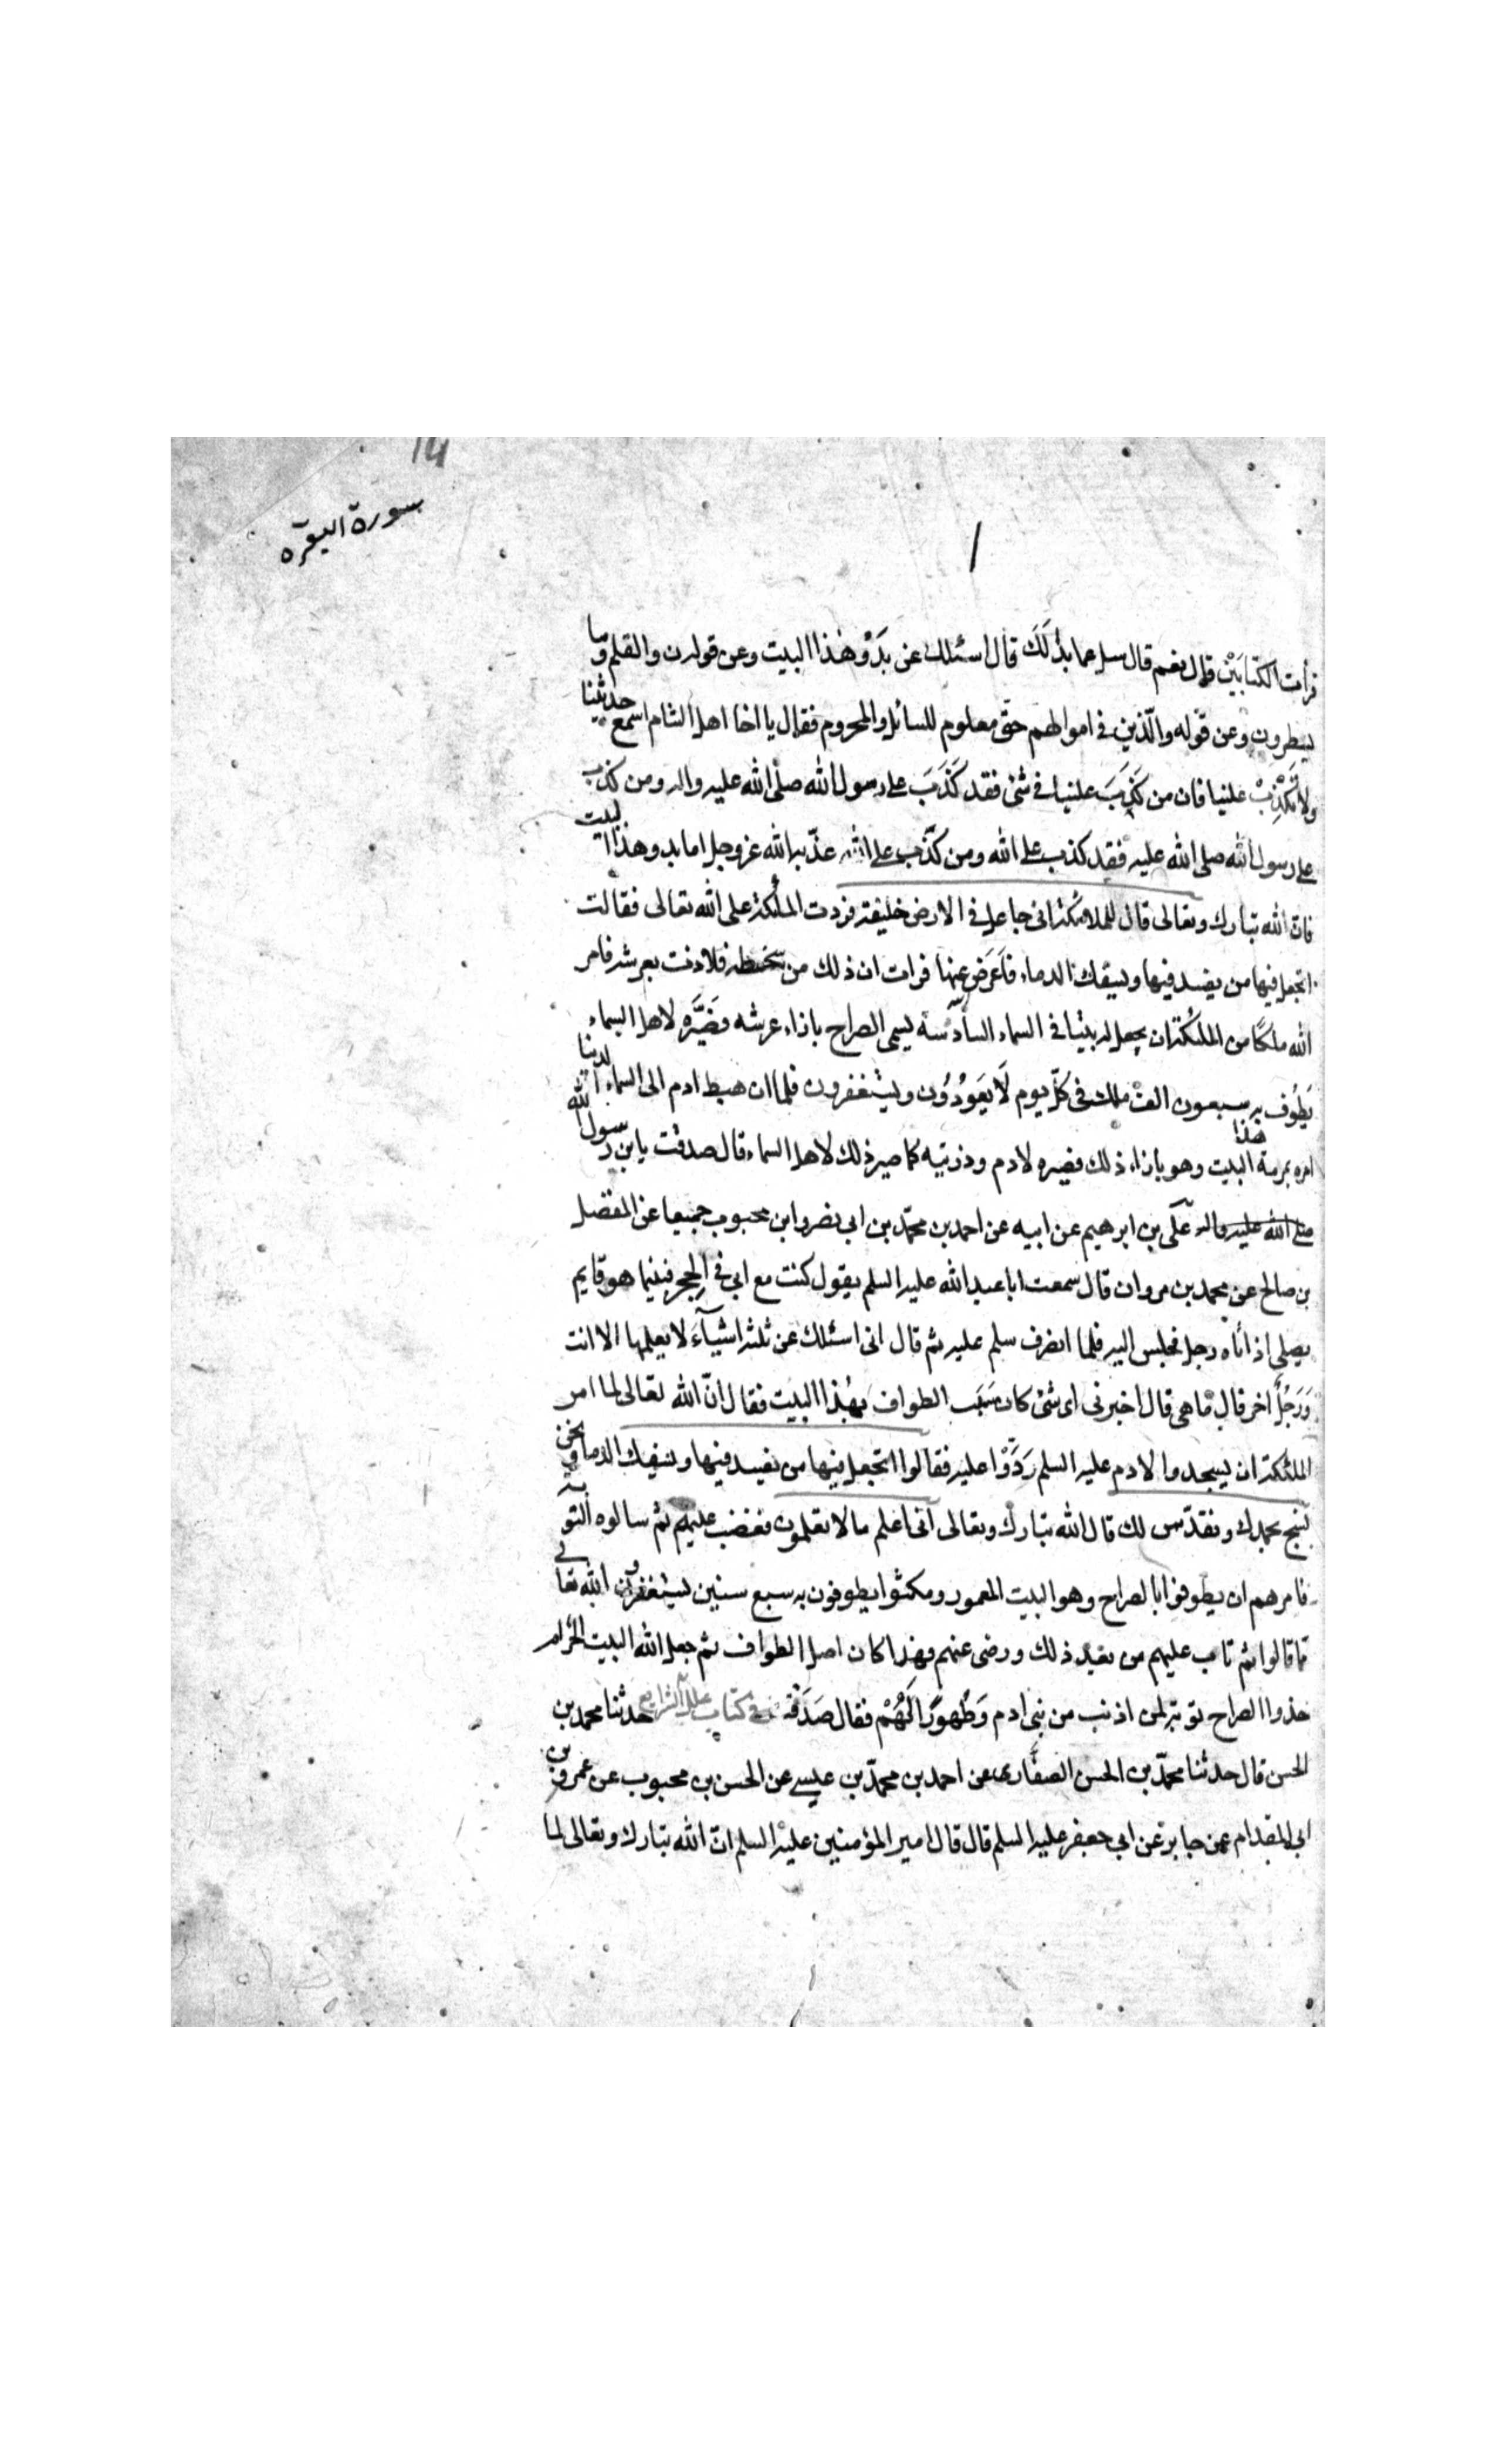 سورة البقرة
قرأت الكتابين قال نعم قال سل عما بدا لك قال اسئلك عن بدو هذا البيت وعن قوله ن والقلم وما
يسطرون وعن قوله والذين في اموالهم حق معلوم للسائل والمحروم فقال يا اخا اهل الشام اسمع حديثنا
ولا تكذب علينا فان من كذب علينا في شئ فقد كذب على رسول الله صلى الله عليه واله ومن كذب
على رسول الله صلى الله عليه فقد كذب على الله ومن كذب على الله عذبه الله عز وجل اما بدو هذا البيت
فان الله تبارك وتعالى قال للملائكة اني جاعل في الارض خليفة فردت الملئكة على الله تعالى فقالت
اتجعل فيها من يفسد فيها ويسفك الدماء فاعرض عنها فرات ان ذلك من سخطه فلاذت بعرشه فامر
الله ملكا من الملئكة ان يجعل له بيتا في السماء السادسة يسمى الصراح بازاء عرشه فصيره لاهل السماء
يطوف به سبعون الف ملك في كل يوم لا يعودون ويستغفرون فلما ان هبط ادم الى السماء الدنيا
امره بمرمة هذا البيت وهو بازاء ذلك فصيره لادم وذريته كما صير ذلك لاهل السماء قال صدقت يابن رسول الله
صلى الله عليه واله علي بن ابرهيم عن ابيه عن احمد بن محمد بن ابي نصر وابن محبوب جميعا عن المفضل
بن صالح عن محمد بن مروان قال سمعت ابا عبد الله عليه السلم يقول كنت مع ابي في الحجر فبينما هو قايم
يصلي اذ اتاه رجل فجلس اليه فلما انصرف سلم عليه ثم قال اني اسئلك عن ثلثة اشياء لا يعلمها الا انت
ورجل اخر قال ما هي قال اخبرني اي شئ كان سبب الطواف بهذا البيت فقال ان الله تعالى لما امر
الملئكة ان يسجدوا لادم عليه السلم ردوا عليه فقالوا اتجعل فيها من يفسد فيها ويسفك الدما ونحن
نسبح بحمدك ونقدس لك قال الله تبارك وتعالى اني اعلم ما لا تعلمون فغضب عليهم ثم سالوه التوبة
فامرهم ان يطوفوا بالصراح وهو البيت المعمور ومكثوا يطوفون به سبع سنين يستغفرون الله تعالى
مما قالوا ثم تاب عليهم من بعد ذلك ورضى عنهم فهذا كان اصل الطواف ثم جعل الله البيت الحرام
حذو الصراح توبة لمن اذنب من بني ادم وطهورا لهم فقال صدقت في كتاب علل الشرايع حدثنا محمد بن
الحسن قال حدثنا محمد بن الحسن الصفار عن احمد بن محمد بن عيسى عن الحسن بن محبوب عن عمرو بن
ابي المقدام عن جابر عن ابي جعفر عليه السلم قال قال امير المؤمنين عليه السلم ان الله تبارك وتعالى لما